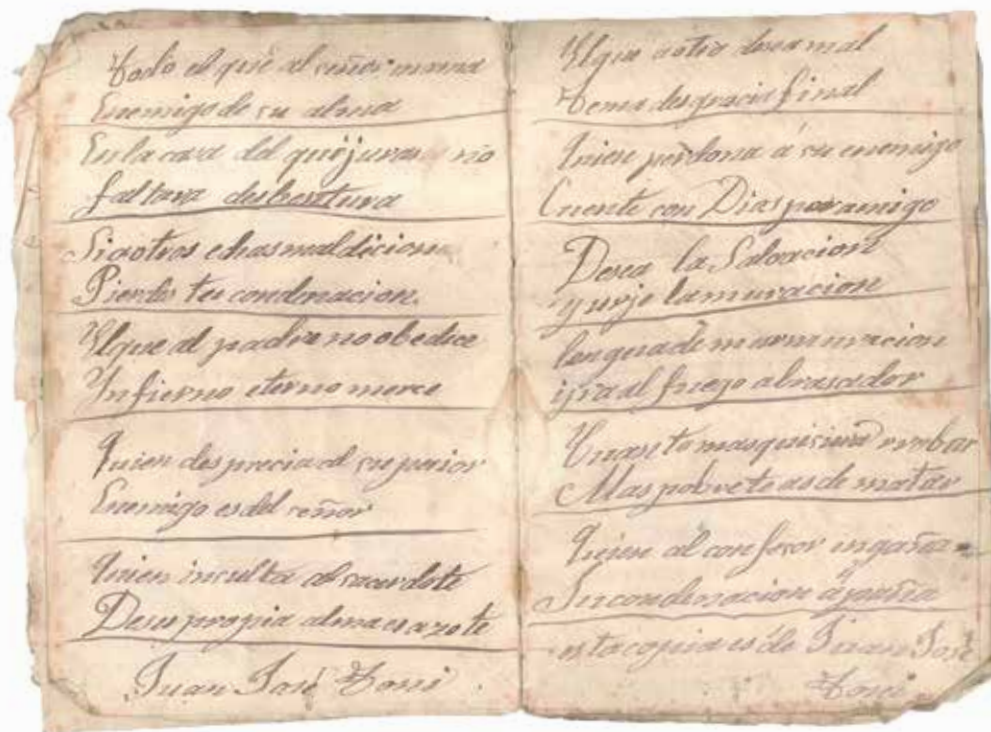 Todo el que al señor
Enemigo de su alma
En la casa del que jura no
faltara desbentura
Si a otros echas maldicion
Pierdes tu condenacion.
Y lque al padre no obedice
Ynfierno eterno merce
Quien desprecia al superior
Enemigo es del señor
Quien insulta al sacerdote
De su propia alma es azote
Juan José
Y lque a otro desea mal
Tema desgracia final
Quien perdona á su enemigo
Cuente con Dias por amigo
Desea la Salvacion
lengua de murmuracion
ira al fuego abrasador
Cuanto mas quisiera rrobar
Mas pobre te as de matar
Quien al confesor engaña
Su condenacion
esta copia es de Juan José